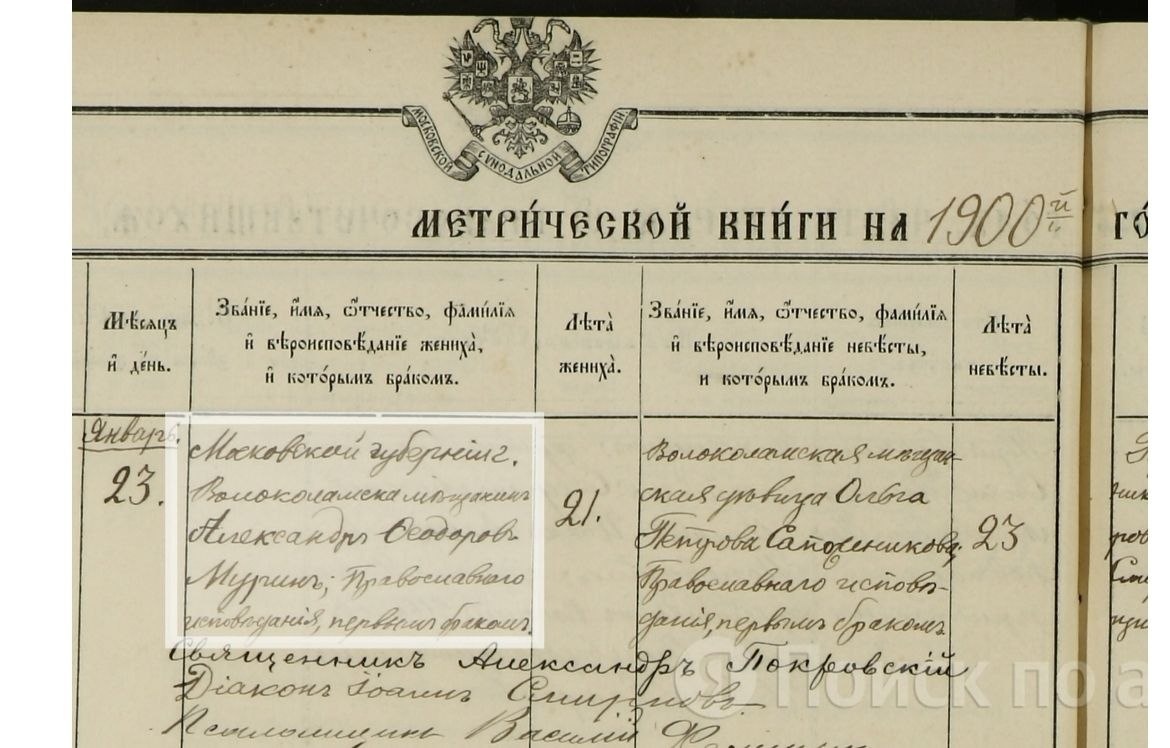 МОСКОВСКОЙ СѴНОДАЛЬНОЙ ТИПОГРАФІИ
МЕТРИ́ЧЕСКОЙ КНИ́ГИ НА 1900й ГО́
Мѣ́сяцъ и҆ де́нь.
Зва́нїе, и҆́мѧ, ѻ҆́тчество, фами́лїѧ и҆ вѣроисповѣ́данїе жениха̀, и҆ кото́рымъ бра́комъ.
Лѣ́та̀ жениха̀.
Зва́нїе, и҆́мѧ, ѻ҆́тчество, фами́лїѧ и҆ вѣроисповѣ́данїе невѣ́сты, и҆ кото́рымъ бра́комъ.
Лѣ́та̀ невѣ́сты.
Январь.
23.
Московской губерніи г.
Волоколамска мѣщанинъ
Александръ Ѳеодоровъ
Муринъ; Православнаго
исповѣданія, первымъ бракомъ.
21.
Волоколамская мѣщан-
ская дѣвица Ольга
Петрова Сапожникова;
Православнаго исповѣ-
данія, первымъ бракомъ.
23
Священникъ Александръ Покровскій
Діаконъ Іоаннъ Смирновъ.
Псаломщикъ Василій
Поиск по а